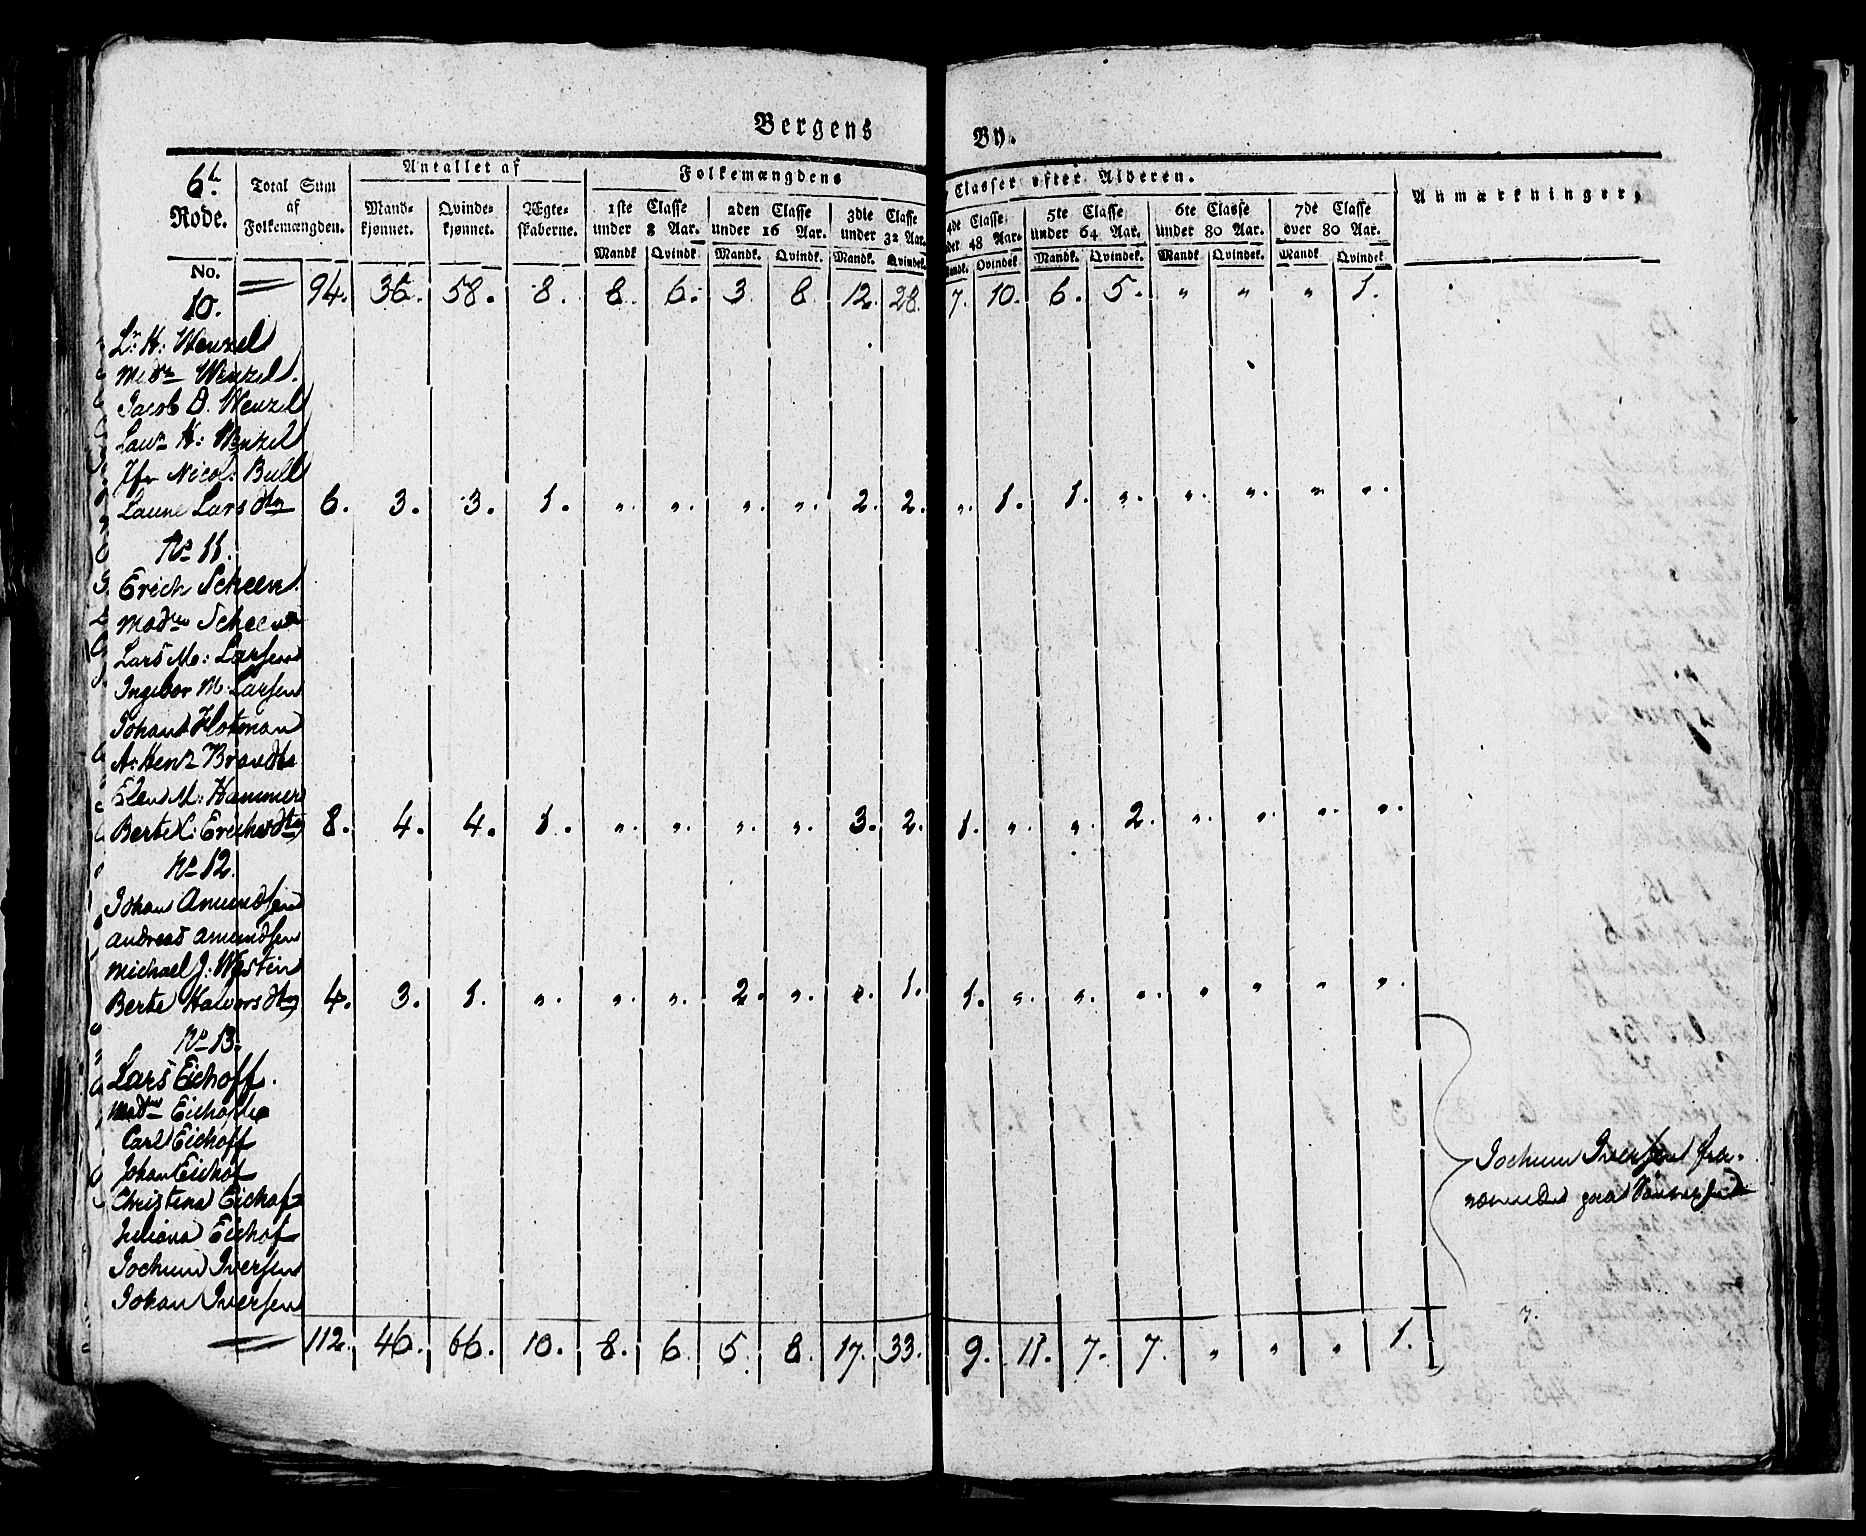 Bergens By.
6te Rode.
Total Sum af Folkemængden.
Antallet af
Mandkjønnet. Qvindekjønnet. Ægteskaberne.
Folkemængdens Classer efter Alderen.
1ste Classe under 8 Aar. 2den Classe under 16 Aar. 3die Classe under 32 Aar. 4de Classe under 48 Aar. 5te Classe under 64 Aar. 6te Classe under 80 Aar. 7de Classe over 80 Aar.
Mandk. Qvindk. Mandk. Qvindk. Mandk. Qvindek. Mandk. Qvindek. Mandk. Qvindek. Mandk. Qvindek. Mandk. Qvindek.
Anmærkninger,
No. 10. 94. 36. 58. 8. 8. 6. 3. 8. 12. 28. 7. 10. 6. 5. " " " 1.
L: H: Wenzel
Mdm Wenzel.
Jacob D. Wenzel
Laur H: Wenzel
Jfr Nicol: Bull
Laune Larsdtr 6. 3. 3. 1. " " " " 2. 2. " 1. 1. " " " " "
No 11.
Erich Scheen
Madm Scheen
Lars M: Larsen
Ingebor M: Larsen
Johan Flotman
A: Henr Brandt
Elen M: Hammer
Berte C: Erichsdtr 8. 4. 4. 1. " " " " 3. 2. 1. " " 2. " " " "
No 12.
Johan Amundsen
Andreas Amundsen
Michael J: Westin
Berte Halvorsdtr 4. 3. 1. " " " 2. " " 1. 1. " " " " " " "
No 13.
Lars Eichoff.
Madm Eichoff
Carl Eichoff
Johan Eichof
Christina Eichof
Juliana Eichof
Jochum Iversen
Johan Iversen
Jochum Iversen fra-
112. 46. 66. 10. 8. 6. 5. 8. 17. 33. 9. 11. 7. 7. " " " 1.